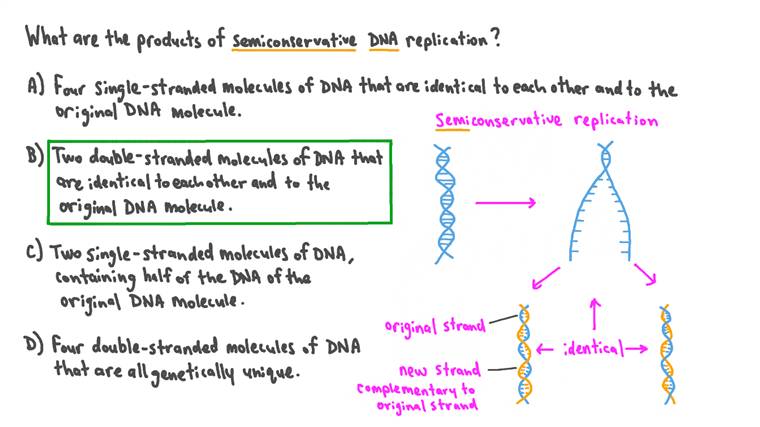 What are the products of semiconservative DNA replication?
A) Four single-stranded molecules of DNA that are identical to each other and to the
original DNA molecule.
B) Two double-stranded molecules of DNA that
are identical to each other and to the
original DNA molecule.
C) Two single-stranded molecules of DNA,
containing half of the DNA of the
original DNA molecule.
D) Four double-stranded molecules of DNA
that are all genetically unique.
Semiconservative replication
original strand
identical
new strand
complementary to
original strand